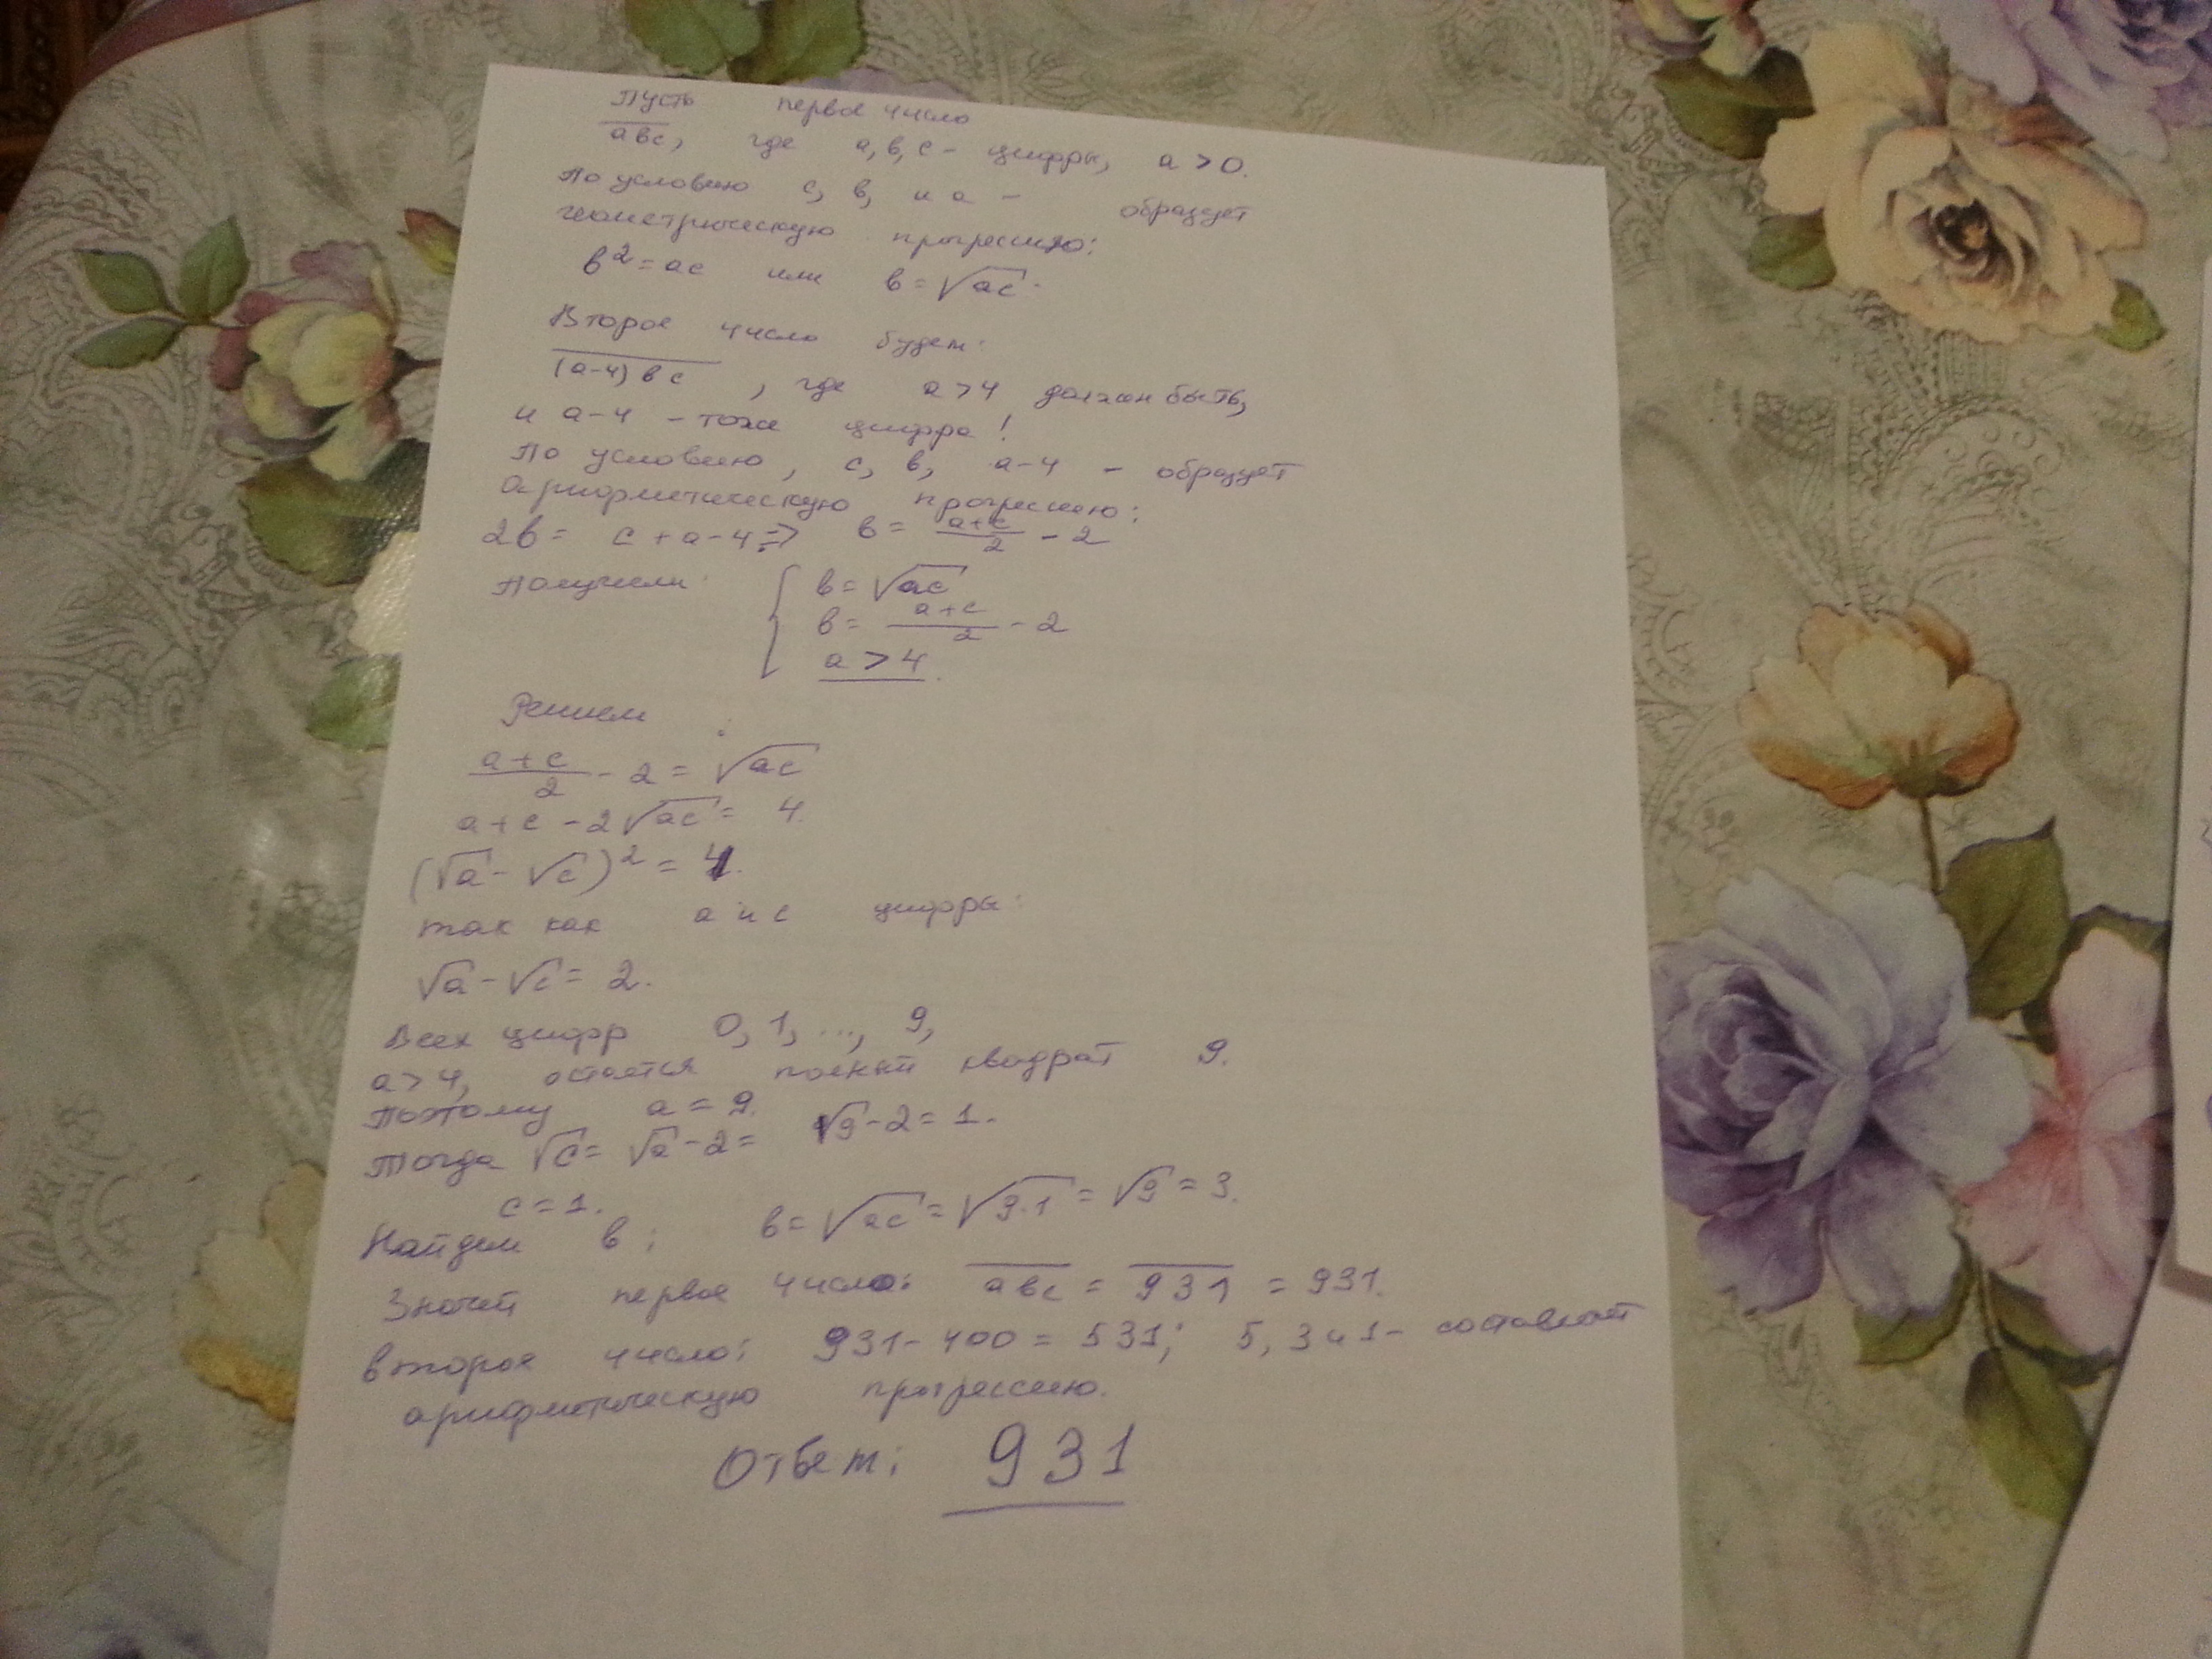 Пусть первое число
abc, где а, в, с - цифры, а > 0.
По условию с, в, и а - образует
геометрическую прогрессию:
в² = ас или в = √ас.
Второе число будем:
(а-4) в с , где а > 4 должен быть,
и а-4 - тоже цифра!
По условию, с, в, а-4 - образует
арифметическую прогрессию:
2в = с + а - 4 => в = (а+с)/2 - 2
Получили: { в = √ас
в = (а+с)/2 - 2
а > 4.
Решием :
(а+с)/2 - 2 = √ас
а + с - 2√ас = 4.
(√а - √с)² = 4.
так как а и с цифры:
√а - √с = 2.
Всех цифр 0, 1, ..., 9,
а > 4, остается полный квадрат 9.
Поэтому а = 9.
Тогда √с = √а - 2 = √9 - 2 = 1.
с = 1.
Найдем в: в = √ас = √9·1 = √9 = 3.
Значит первое число: авс = 931 = 931.
второе число: 931 - 400 = 531; 5, 3 и 1 - составляет
арифметическую прогрессию.
Ответ: 931